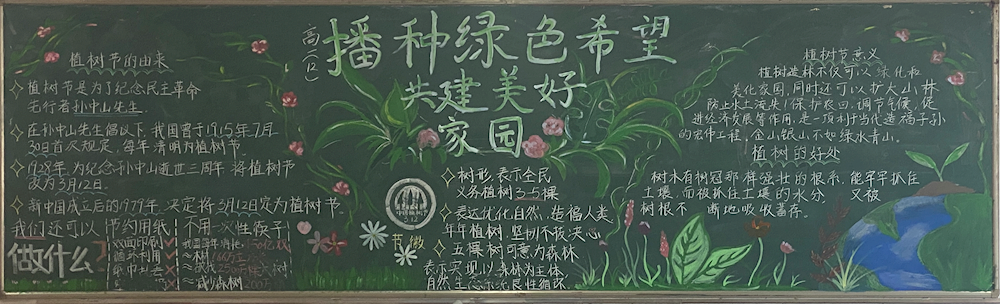 高一(12)
播种绿色希望
共建美好
家园
植树节的由来
植树节是为了纪念民主革命
先行者孙中山先生
在孙中山先生倡以下,我国曾于1915年7月
30日首次规定,每年清明为植树节.
1928年,为纪念孙中山逝世三周年 将植树节
改为3月12日.
新中国成立后的1979年,决定将3月12日定为植树节.
我们还可以
做什么?
节约用纸
双面印刷
循环利用
不用一次性筷子
减少森林
节徽
树形,表示全民
义务植树3-5棵
表达优化自然,造福人类,
年年植树,坚韧不拔决心
五棵树可意为森林
表示实现以森林为主体,
自然生态系统良性循环.
植树节意义
植树造林不仅可以绿化和
美化家园,同时还可以扩大山林
防止水土流失,保护农田、调节气候,促
进经济发展等作用,是一项利于当代造福子孙
的宏伟工程,金山银山不如绿水青山.
植树的好处
树木有树冠那样强壮的根系,能牢牢抓住
土壤,而被抓住土壤的水分 又被
树根不 断地吸收蓄存.